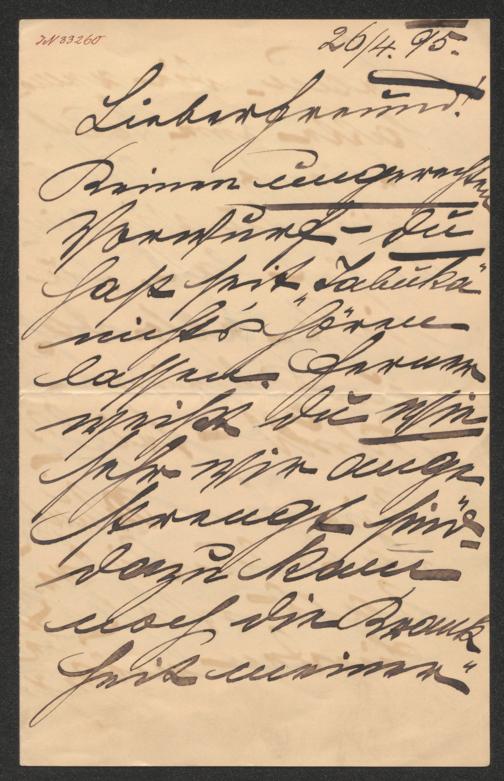 JN 33260
26/4. 95.
Lieber Freund!
Keinen ungerechten
Vorwurf – du
hast seit "Jabuka"
nichts hören
lassen. Ferner
weißt du wie
sehr wir ange
strengt sind
dazu kam
noch die Krank
heit meiner